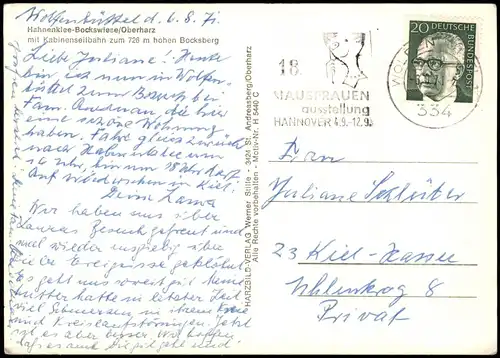 Wolfenbüttel d. 6. 8. 71.
Hahnenklee-Bockswiese/Oberharz
mit Kabinenseilbahn zum 726 m hohen Bocksberg
Liebe Juliane! Heute
bin ich nun in Wolfen-
büttel zum Besuch bei
Fam. die hier
eine schöne Wohnung
haben. Fahre gleich zurück
nach Hahnenklee um
16 Uhr, bin um 18 Uhr dort
Auf Wiedersehen in Kiel!
Deine Laura
Wir haben uns über
Lauras Besuch gefreut und
mal wieder ausgiebig über
die Ereignisse geklönt.
Es geht uns soweit gut. Meine
Mutter hatte in letzter Zeit
viel Schmerzen in ihrem Knie
und Kreislaufstörungen. Jetzt
ist es aber besser. Wir hoffen
daß es und
HARZBILD-VERLAG Werner Stille · 3424 St. Andreasberg/Oberharz
Alle Rechte vorbehalten · Motiv-Nr. H 5440 C
18.
HAUSFRAUEN
ausstellung
HANNOVER 4.9.-12.9.
20 DEUTSCHE
BUNDESPOST
334
Frau
Juliane Schlüter
23 Kiel-Hassee
Uhlenkrog 8
Privat